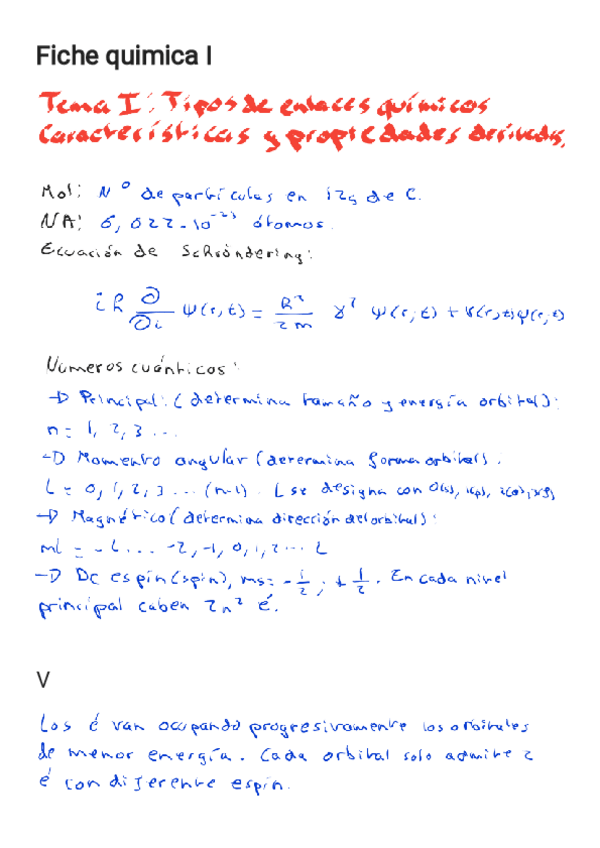 Fiche quimica I
Tema I: Tipos de enlaces químicos
Características y propiedades derivadas.
Mol: Nº de partículas en 12g de C.
NA: 6,022·10⁻²³ átomos.
Ecuación de Schröndering:
iℏ ∂/∂t Ψ(r,t) = ℏ²/2m γ² Ψ(r,t) + V(r,t)Ψ(r,t)
Números cuánticos:
→ Principal: (determina tamaño y energía orbital):
n = 1, 2, 3 ...
→ Momento angular (determina forma orbital).
L = 0, 1, 2, 3 ... (n-1). L se designa con 0(s), 1(p), 2(d), 3(f)
→ Magnético (determina dirección del orbital):
ml = -L ... -2, -1, 0, 1, 2 ... L
→ De espín (spin), ms = -1/2 ; +1/2. En cada nivel
principal caben 2n² é.
V
Los é van ocupando progresivamente los orbitales
de menor energía. Cada orbital solo admite 2
é con diferente espín.